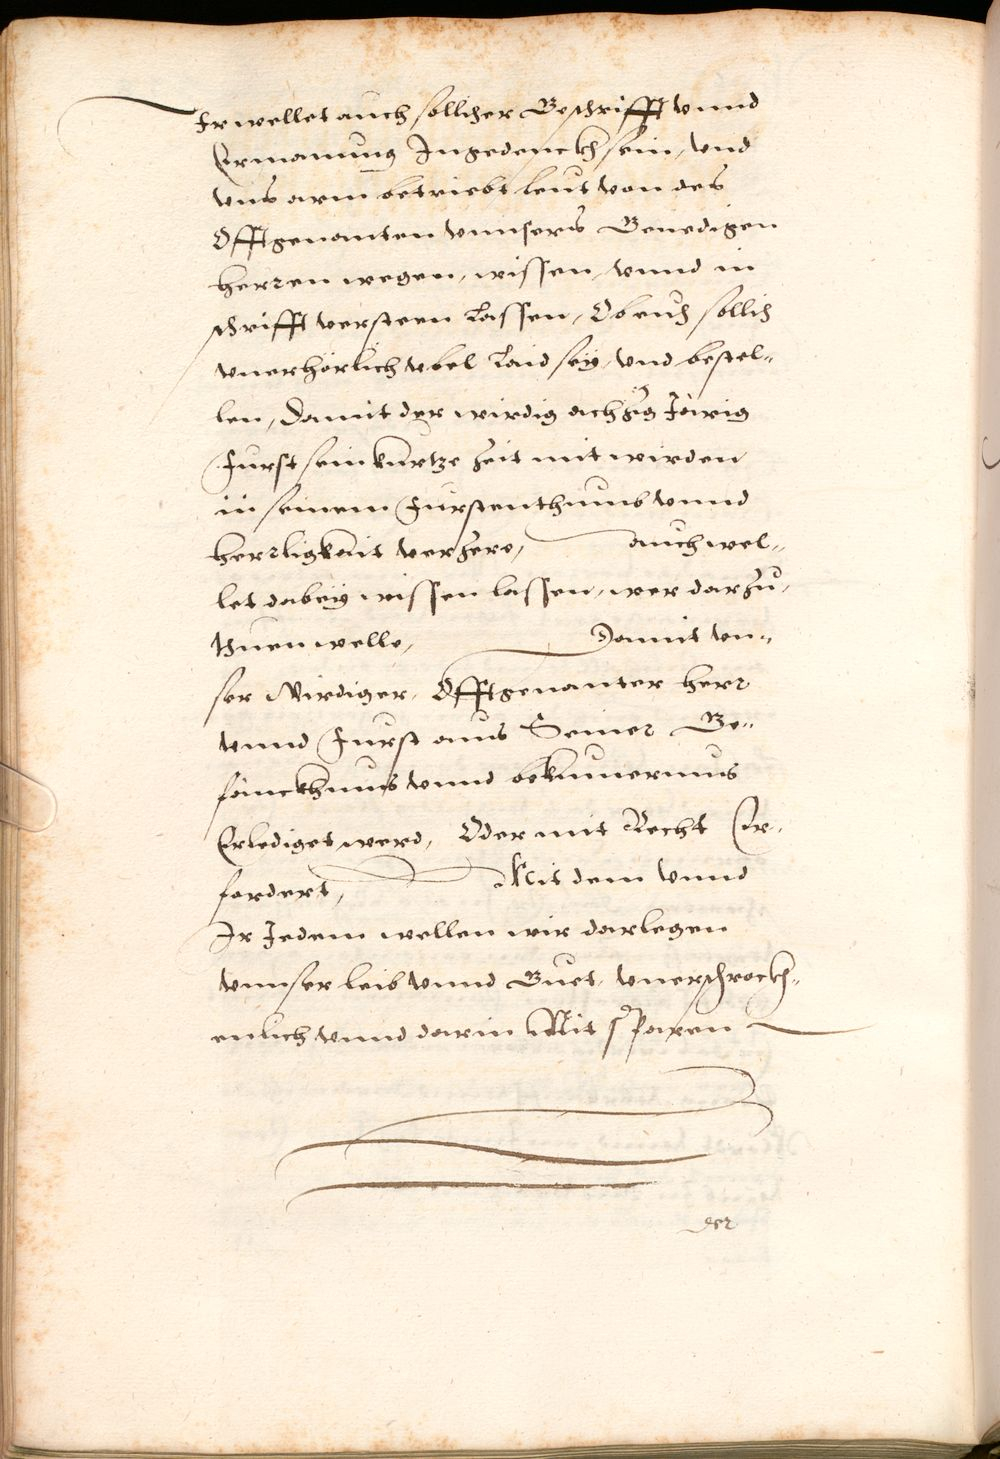 Ir wellet auch sollicher Geschrifft vnnd
Ermanung Ingedenckh sein, vnd
vns arm betriebt leut von des
Offtgenanten vnnsers Genedigen
herren wegen, wissen, vnnd in
schrifft versteen Lassen, Ob euch sollich
vnerhörlich vbel Laid sey, vnd bestel-
len, Damit der wirdig achzig Järig
Fürst sein kurtze zeit mit wirden
in seinem Fürstenthumb vnnd
herrligkait verzere, auch wel-
let dabey wissen lassen, wer darzu,
thuen welle, Damit vn-
ser Wirdiger, Offtgenanter herr
vnnd Fürst aus Seiner Ge-
fänckhnus vnnd bekumernus
Erlediget werd, Oder mit Recht Er-
fordert, Mit dem vnnd
Ir Jedem wellen wir darlegen
vnnser leib vnnd Guet, vnerschrockh-
enlich vnnd darin Nit sparen
der